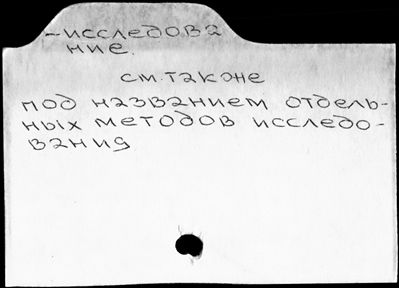 -исследова
ние.
см. также
под названием отдель-
ных методов исследо-
вания